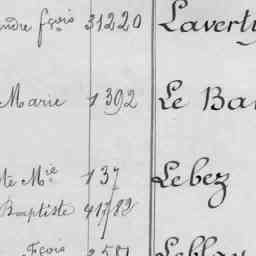 ndre fçois 31220 Laverty
Marie 1392 Le Ba
te Mie 137 Lebez
Baptiste 41783
Fçois